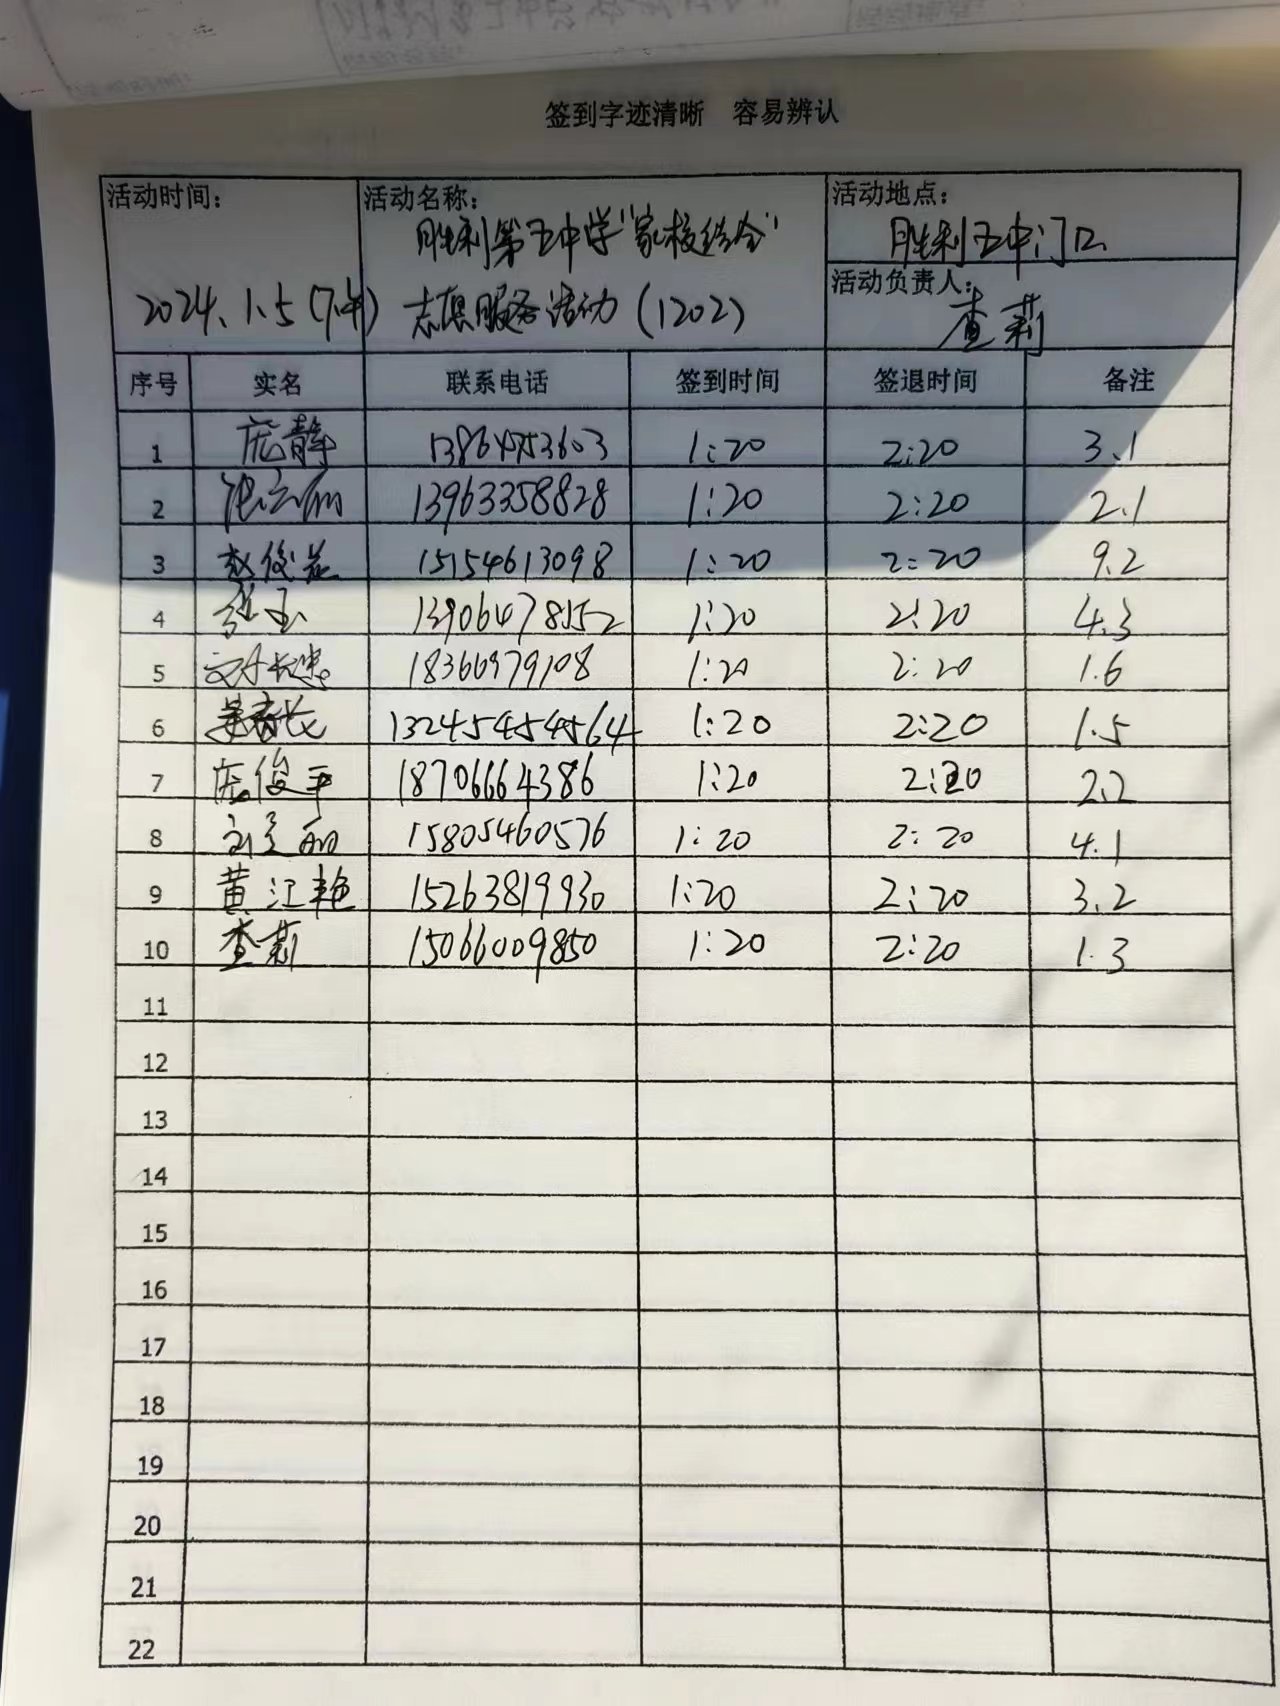 签到字迹清晰 容易辨认
活动时间： 活动名称： 活动地点：
胜利第五中学"家校结合" 胜利五中门口
活动负责人：
2024.1.5(下午) 志愿服务活动(1202) 查莉
序号 实名 联系电话 签到时间 签退时间 备注
1 庞静 1:20 2:20 3.1
2 13963358828 1:20 2:20 2.1
3 赵俊益 15154613098 1:20 2:20 9.2
4 13906478152 1:20 2:20 4.3
5 1:20 2:20 1.6
6 13245454564 1:20 2:20 1.5
7 庞俊平 18706664386 1:20 2:20 2.2
8 15805460576 1:20 2:20 4.1
9 黄江艳 15263819930 1:20 2:20 3.2
10 查莉 15066009850 1:20 2:20 1.3
11
12
13
14
15
16
17
18
19
20
21
22